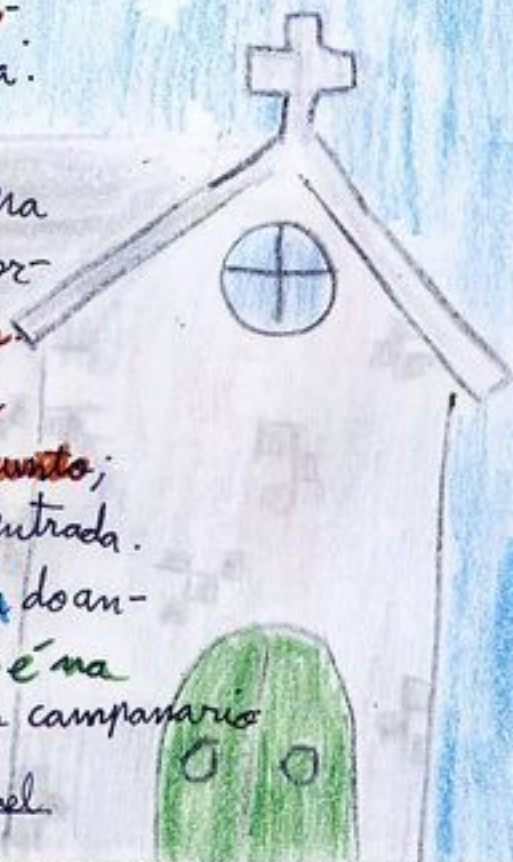 a:
na
or-
unto;
entrada.
doan-
é na
campanario
el.